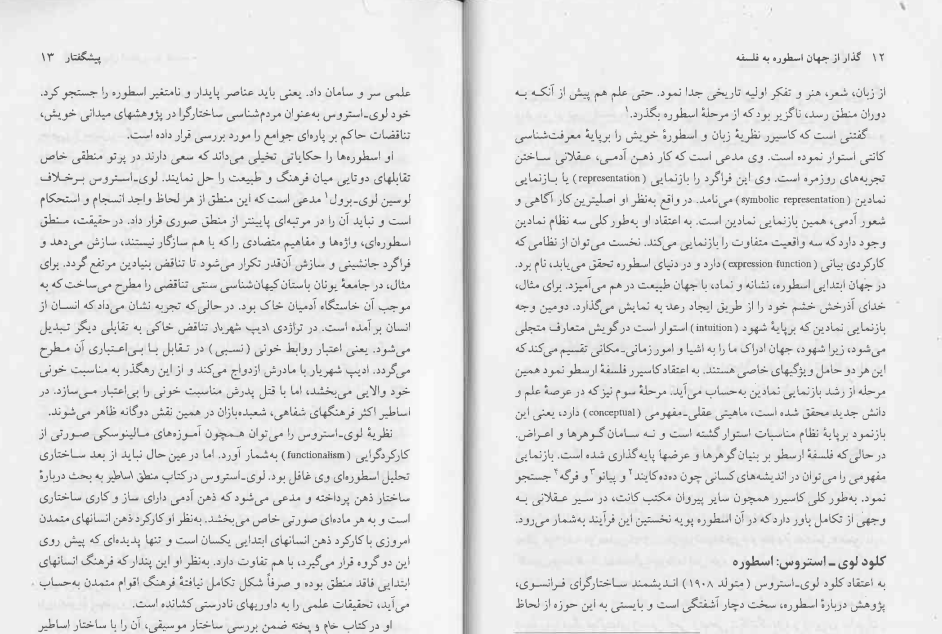 ۱۲ گذار از جهان اسطوره به فلسفه
از زبان، شعر، هنر و تفکر اولیه تاریخی جدا نمود. حتی علم هم پیش از آنکه به
دوران منطق رسد، ناگزیر بود که از مرحلهٔ اسطوره بگذرد.۱
گفتنی است که کاسیرر نظریهٔ زبان و اسطورهٔ خویش را برپایهٔ معرفت‌شناسی
کانتی استوار نموده است. وی مدعی است که کار ذهن آدمی، عقلانی ساختن
تجربه‌های روزمره است. وی این فراگرد را بازنمایی (representation) یا بازنمایی
نمادین (symbolic representation) می‌نامد. در واقع به‌نظر او اصلیترین کار آگاهی و
شعور آدمی، همین بازنمایی نمادین است. به اعتقاد او به‌طور کلی سه نظام نمادین
وجود دارد که سه واقعیت متفاوت را بازنمایی می‌کند. نخست می‌توان از نظامی که
کارکردی بیانی (expression function) دارد و در دنیای اسطوره تحقق می‌یابد، نام برد.
در جهان ابتدایی اسطوره، نشانه و نماد، با جهان طبیعت در هم می‌آمیزد. برای مثال،
خدای آذرخش خشم خود را از طریق ایجاد رعد به نمایش می‌گذارد. دومین وجه
بازنمایی نمادین که برپایهٔ شهود (intuition) استوار است در گویش متعارف متجلی
می‌شود، زیرا شهود، جهان ادراک ما را به اشیا و امور زمانی-مکانی تقسیم می‌کند که
این هر دو حامل ویژگیهای خاصی هستند. به اعتقاد کاسیرر فلسفهٔ ارسطو نمود همین
مرحله از رشد بازنمایی نمادین به‌حساب می‌آید. مرحلهٔ سوم نیز که در عرصهٔ علم و
دانش جدید محقق شده است، ماهیتی عقلی-مفهومی (conceptual) دارد، یعنی این
بازنمود برپایهٔ نظام مناسبات استوار گشته است و نه سامان گوهرها و اعراض.
در حالی که فلسفهٔ ارسطو بر بنیان گوهرها و عرضها پایه‌گذاری شده است. بازنمایی
مفهومی را می‌توان در اندیشه‌های کسانی چون دده‌کایند۲ و پیانو۳ و فرگه۴ جستجو
نمود. به‌طور کلی کاسیرر همچون سایر پیروان مکتب کانت، در سیر عقلانی به
وجهی از تکامل باور دارد که در آن اسطوره پویه نخستین این فرآیند به‌شمار می‌رود.
کلود لوی ـ استروس: اسطوره
به اعتقاد کلود لوی-استروس (متولد ۱۹۰۸) اندیشمند ساختارگرای فرانسوی،
پژوهش دربارهٔ اسطوره، سخت دچار آشفتگی است و بایستی به این حوزه از لحاظ
پیشگفتار ۱۳
علمی سر و سامان داد. یعنی باید عناصر پایدار و نامتغیر اسطوره را جستجو کرد.
خود لوی-استروس به‌عنوان مردم‌شناسی ساختارگرا در پژوهشهای میدانی خویش،
تناقضات حاکم بر پاره‌ای جوامع را مورد بررسی قرار داده است.
او اسطوره‌ها را حکایاتی تخیلی می‌داند که سعی دارند در پرتو منطقی خاص
تقابلهای دوتایی میان فرهنگ و طبیعت را حل نمایند. لوی-استروس برخلاف
لوسین لوی-برول۱ مدعی است که این منطق از هر لحاظ واجد انسجام و استحکام
است و نباید آن را در مرتبه‌ای پایینتر از منطق صوری قرار داد. در حقیقت، منطق
اسطوره‌ای، واژه‌ها و مفاهیم متضادی را که با هم سازگار نیستند، سازش می‌دهد و
فراگرد جانشینی و سازش آن‌قدر تکرار می‌شود تا تناقض بنیادین مرتفع گردد. برای
مثال، در جامعهٔ یونان باستان کیهان‌شناسی سنتی تناقضی را مطرح می‌ساخت که به
موجب آن خاستگاه آدمیان خاک بود. در حالی‌که تجربه نشان می‌داد که انسان از
انسان برآمده است. در تراژدی ادیپ شهریار تناقض خاکی به تقابلی دیگر تبدیل
می‌شود. یعنی اعتبار روابط خونی (نسبی) در تقابل با بی‌اعتباری آن مطرح
می‌گردد. ادیپ شهریار با مادرش ازدواج می‌کند و از این رهگذر به مناسبت خونی
خود والایی می‌بخشد، اما با قتل پدرش مناسبت خونی را بی‌اعتبار می‌سازد. در
اساطیر اکثر فرهنگهای شفاهی، شعبده‌بازان در همین نقش دوگانه ظاهر می‌شوند.
نظریهٔ لوی-استروس را می‌توان همچون آموزه‌های مالینوسکی صورتی از
کارکردگرایی (functionalism) به‌شمار آورد. اما در عین حال نباید از بعد ساختاری
تحلیل اسطوره‌ای وی غافل بود. لوی-استروس در کتاب منطق اساطیر به بحث دربارهٔ
ساختار ذهن پرداخته و مدعی می‌شود که ذهن آدمی دارای ساز و کاری ساختاری
است و به هر ماده‌ای صورتی خاص می‌بخشد. به‌نظر او کارکرد ذهن انسانهای متمدن
امروزی با کارکرد ذهن انسانهای ابتدایی یکسان است و تنها پدیده‌ای که پیش روی
این دو گروه قرار می‌گیرد، با هم تفاوت دارد. به‌نظر او این پندار که فرهنگ انسانهای
ابتدایی فاقد منطق بوده و صرفاً شکل تکامل نیافتهٔ فرهنگ اقوام متمدن به‌حساب
می‌آید، تحقیقات علمی را به داوریهای نادرستی کشانده است.
او در کتاب خام و پخته ضمن بررسی ساختار موسیقی، آن را با ساختار اساطیر